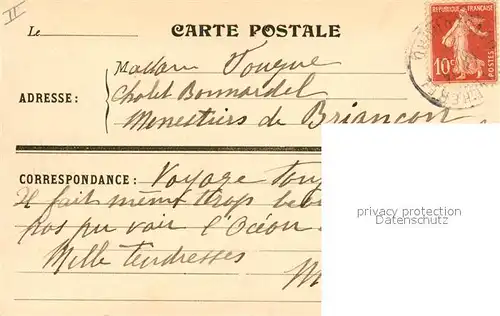 II
Le
CARTE POSTALE
RÉPUBLIQUE FRANÇAISE
10c
POSTES
Madam Tougue
ADRESSE :
Chalet Bonnardel
Menestiers de Briançon
CORRESPONDANCE : Voyage
Il fait même trop
pas pu voir l'Océan
Mille tendresses
M
privacy protection
Datenschutz